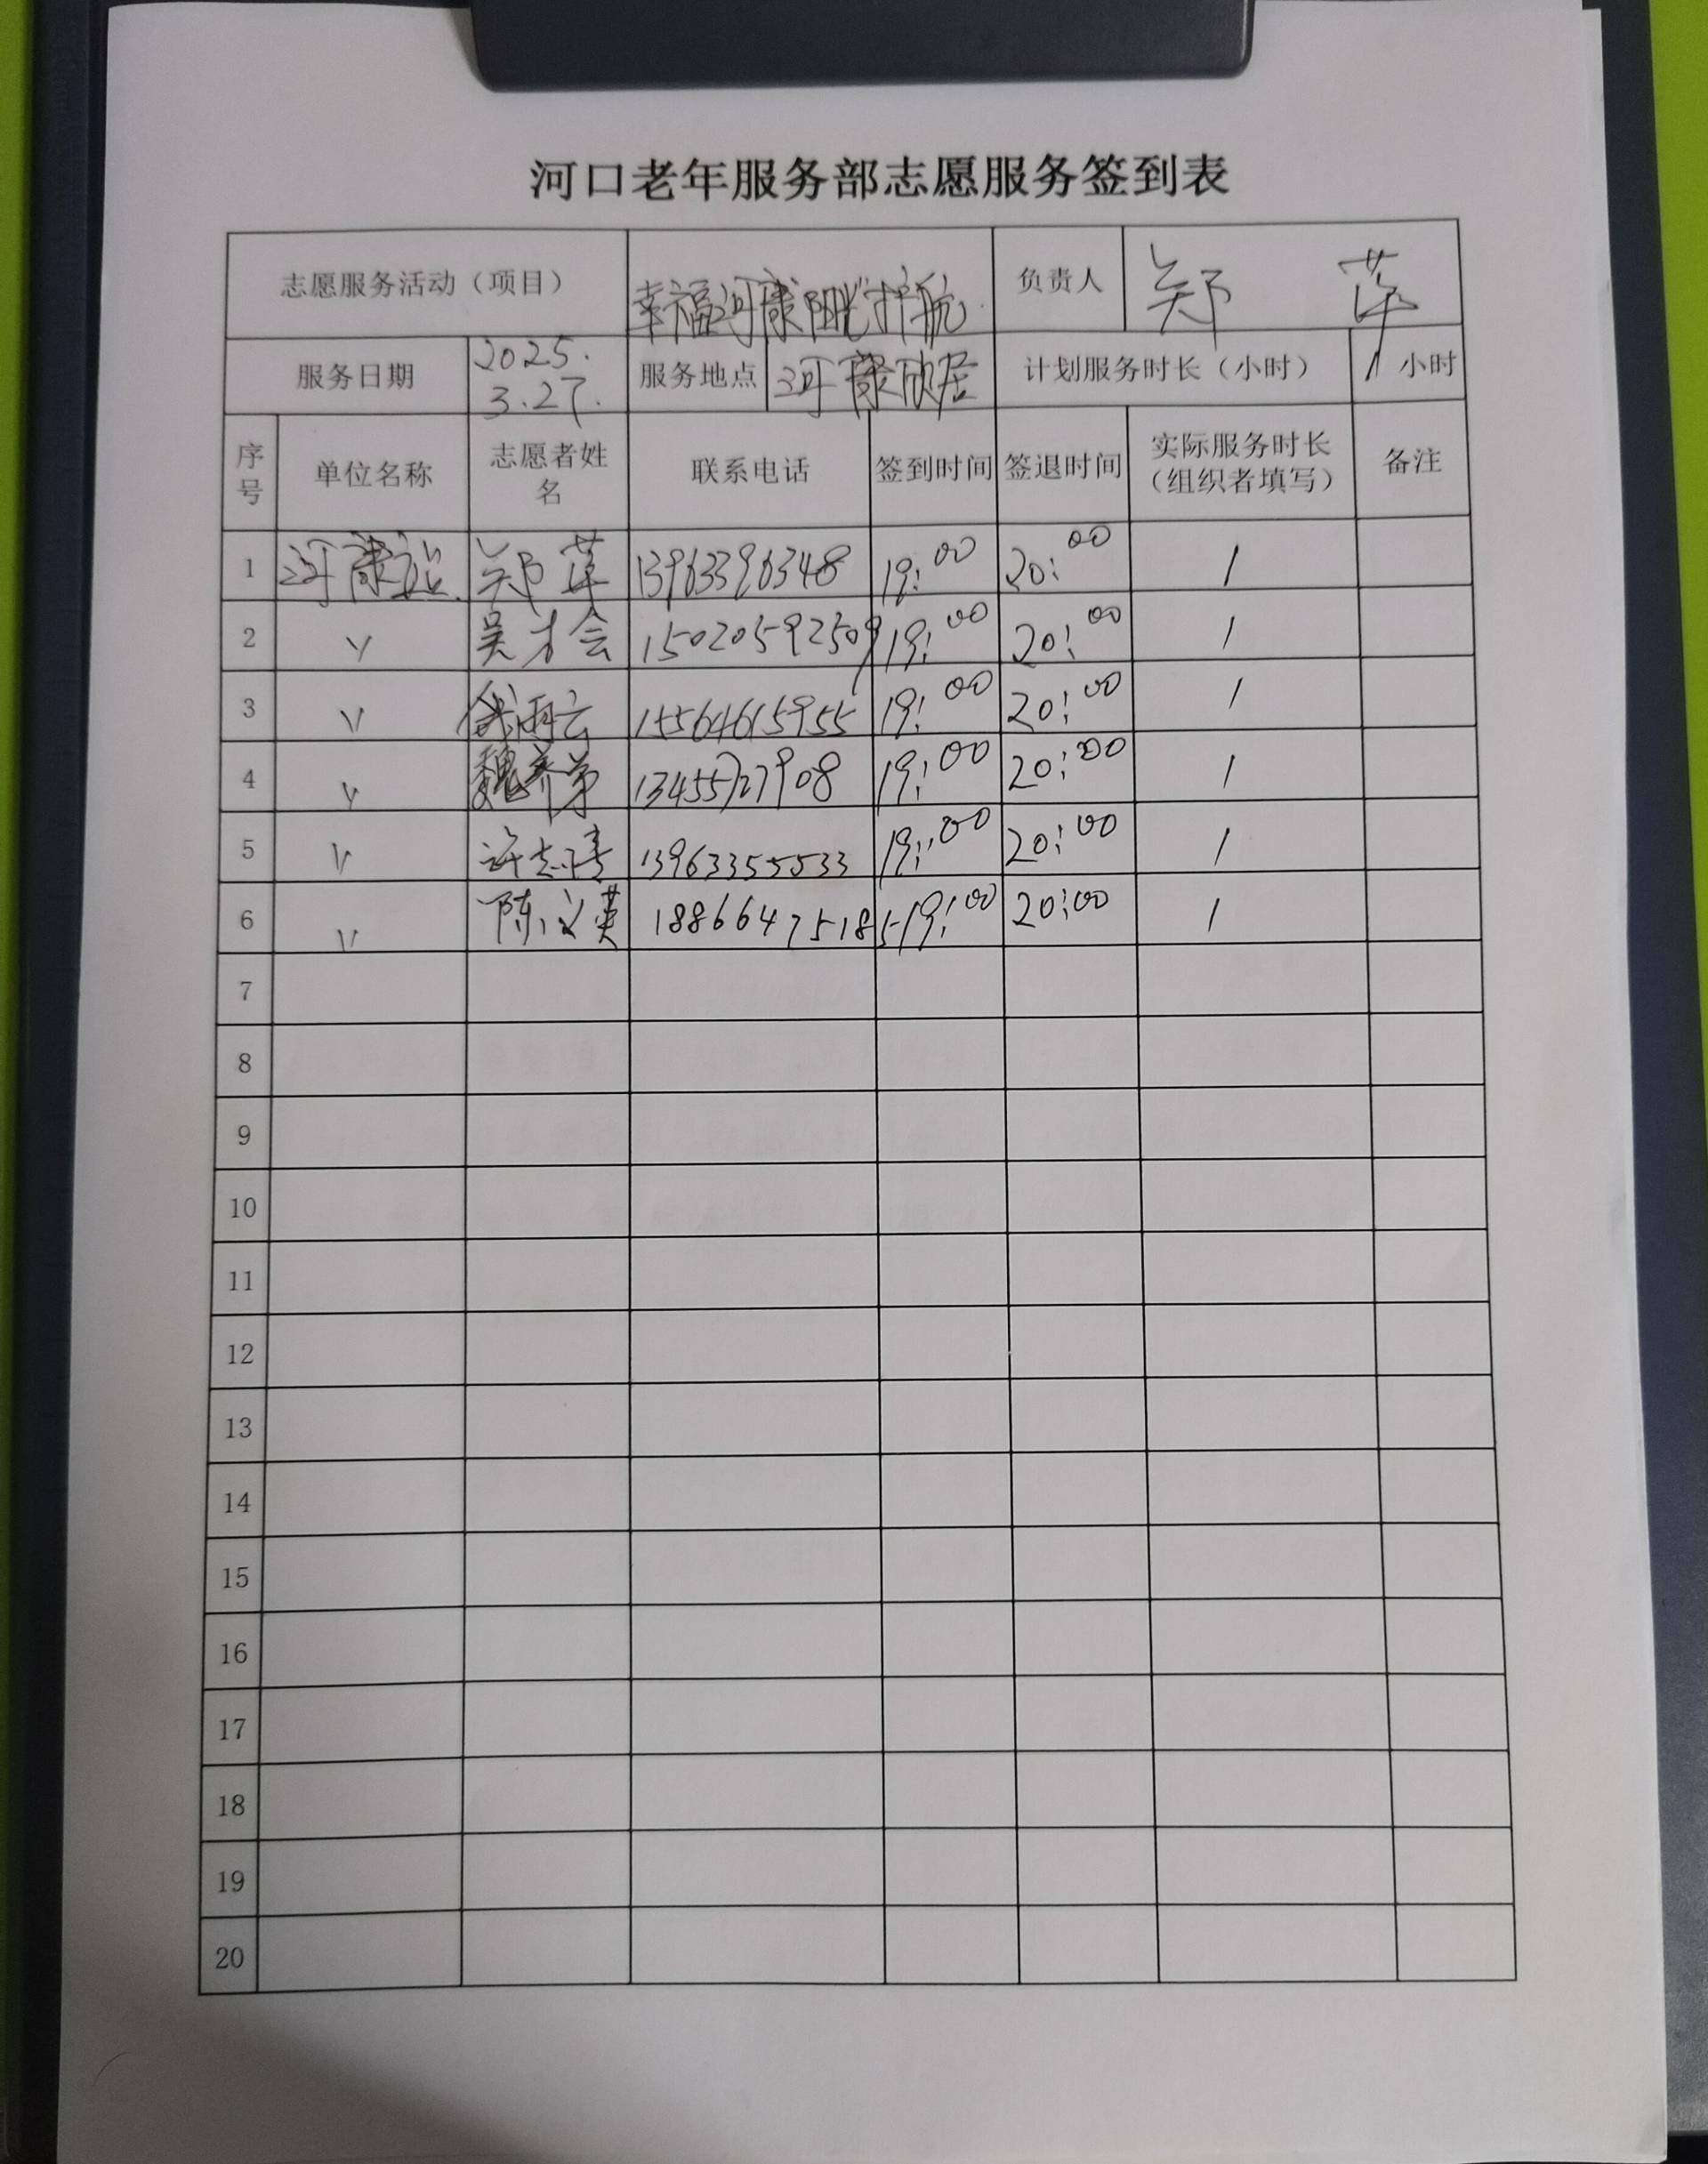 河口老年服务部志愿服务签到表
志愿服务活动（项目） 幸福河康阳光护航 负责人 郑 萍
服务日期 2025. 3.27. 服务地点 河康欣居 计划服务时长（小时） 1 小时
序号 单位名称 志愿者姓名 联系电话 签到时间 签退时间 实际服务时长（组织者填写） 备注
1 河康站. 郑萍 13963396348 19:00 20:00 1
2 吴才会 15020592509 19:00 20:00 1
3 15564615955 19:00 20:00 1
4 13455727908 19:00 20:00 1
5 许志清 13963355533 19:00 20:00 1
6 陈义英 18866475185 19:00 20:00 1
7
8
9
10
11
12
13
14
15
16
17
18
19
20